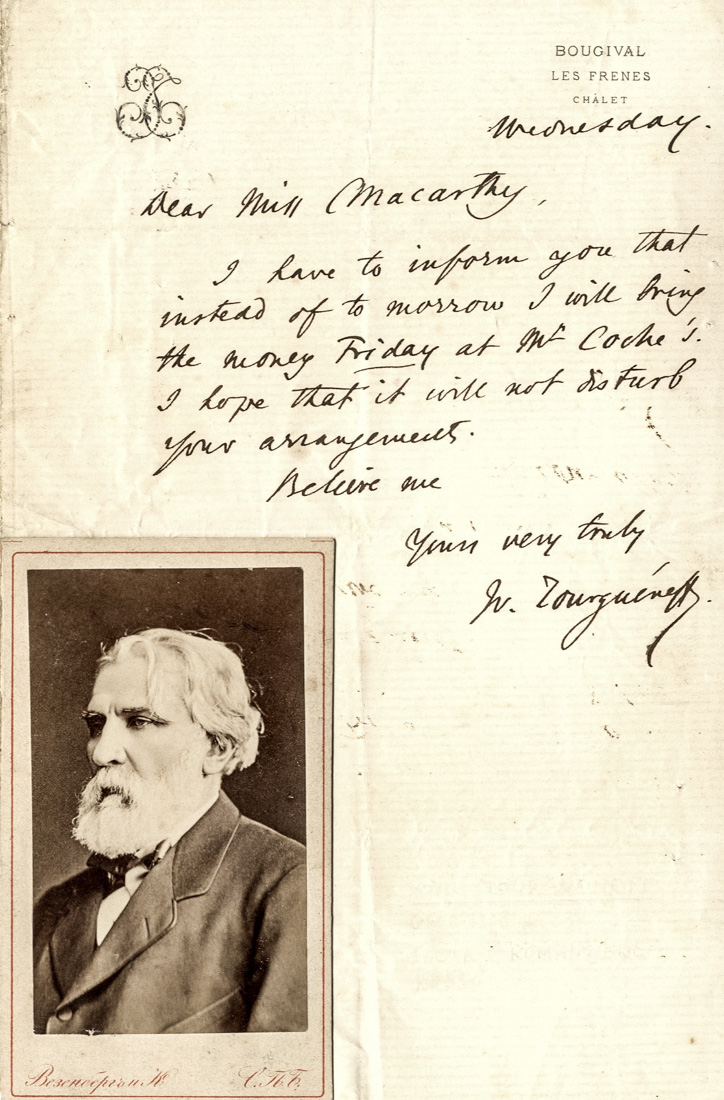 BOUGIVAL
LES FRENES
CHÂLET
Wednesday.
Dear Miss Macarthy,
I have to inform you that
instead of to morrow I will bring
the money Friday at Mr Coche's.
I hope that it will not disturb
your arrangement.
Believe me
Yours very truly
Iv. Tourguéneff.
Везенбергъ и Ко С.П.Б.